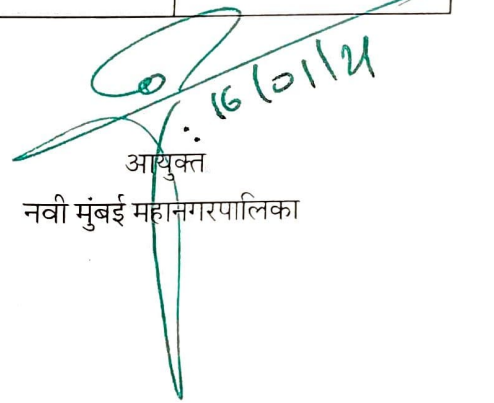 16/01/21
आयुक्त
नवी मुंबई महानगरपालिका